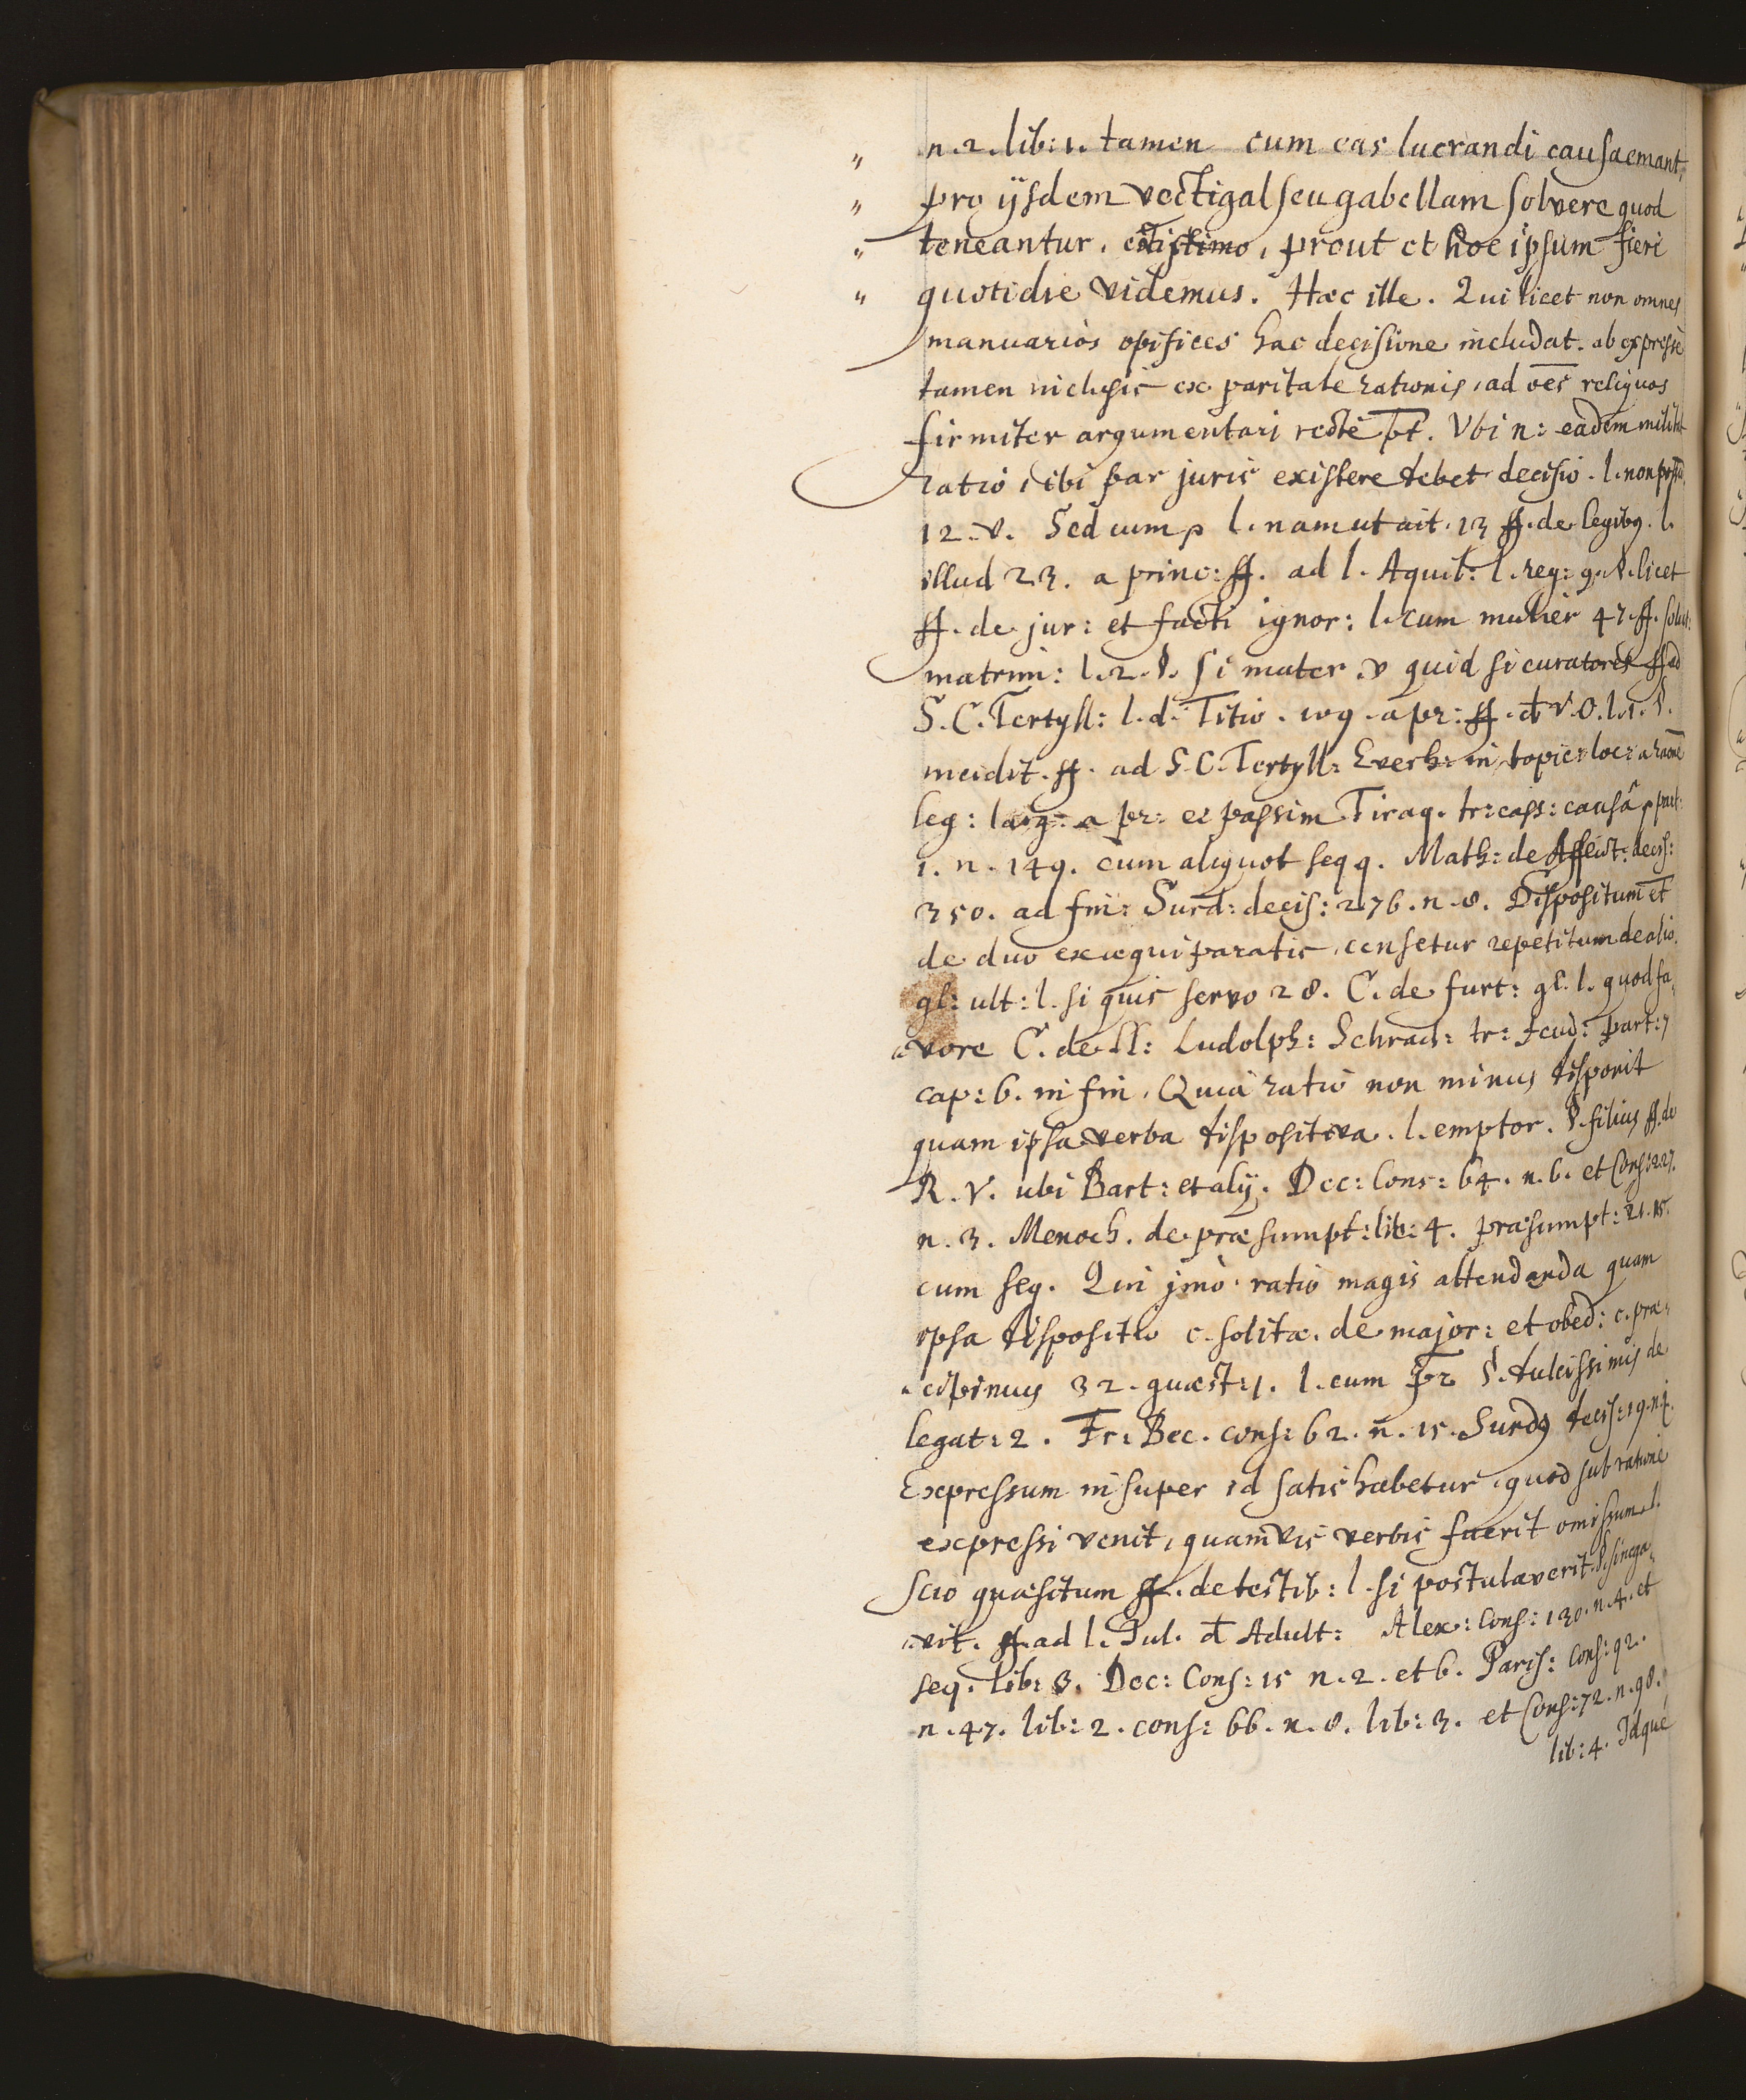 " n. 2. lib: 1. tamen cum eas lucrandi causa emant,
" pro ijsdem vectigal seu gabellam solvere quod
" teneantur, existimo, prout et hoc ipsum fieri
" quotidie videmus. Hæc ille. Qui licet non omnes
manuarios opifices hac decisione includat. ab expresse
tamen inclusis ex paritate rationis, ad oe͞s reliquos
firmiter argumentari recte p͞t. Vbi n: eadem militat
ratio, ibi par juris existere debet decisio. l. non poss͞
12. v. Sed cum, l. nam ut ait. 13 ff. de legibus. l.
illud 23. a princ: ff. ad l. Aquil: l. reg: 9. §. licet
ff. de jur: et facti ignor: l. cum mulier 47. ff. solut:
matrim: l. 2. §. si mater. v quid si curatores ff ad
S. C. Tertyll: l. d. Titio. 109. a pr: ff. d͞ V. O. l. 1. §.
incidit. ff. ad S. C. Tertyll: Everh: in topic: loc: a ra͞one
leg: larg: a pr: et passim Tiraq. tr: cess: causâ, part:
1. n. 149. cum aliquot seqq. Math: de Afflict: decis:
350. ad fin: Surd: decis: 276. n. 8. Dispositum et
de duo exæquiparatis, censetur repetitum de alio.
gl: ult: l. si quis servo 28. C. de furt: gl. l. quod fa,
,vore C. de ll: Ludolph: Schrad: tr: feud: part: 7
cap: 6. in fin. Quia ratio non minus disponit
quam ipsa verba dispositiva. l. emptor. §. filius ff. de
R. V. ubi Bart: et alij. Dec: Cons: 64. n. 6. et Cons: 227.
n. 3. Menoch. de præsumpt: lib: 4. præsumpt: 21. 15.
cum seq. Qui jmò ratio magis attendenda quam
ipsa dispositio c. solitæ. de major: et obed: c. præ,
,cipimus 32. quæst: 1. l. cum pr͞ §. dulcissimis de
legat: 2. Fr: Bec. cons: 62. n. 15. Surdus decis: 19. n. 4.
Expressum insuper id satis habetur, quod sub ratione
expressi venit, quamvis verbis fuerit omissum. l.
scio quæsitum ff. de testib: l. si postulaverit §. si nega,
,vit. ff. ad l. Jul. d͞ Adult: Alex: Cons: 130. n. 4. et
seq. lib: 3. Dec: Cons: 15 n. 2. et 6. Paris: Cons: 92.
n. 47. lib: 2. cons: 66. n. 8. lib: 3. et Cons: 72. n. 98.
lib: 4. Idque